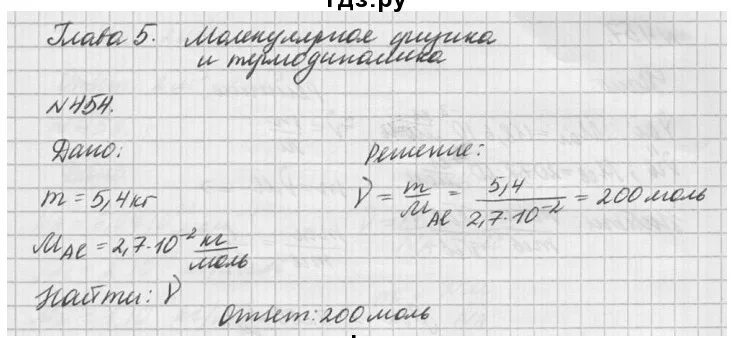 гдз.ру
Глава 5. Молекулярная физика
и термодинамика
N454.
Дано:
m = 5,4 кг
M Al = 2,7·10⁻² кг/моль
Найти: ν
Решение:
ν = m/M Al = 5,4/2,7·10⁻² = 200 моль
Ответ: 200 моль